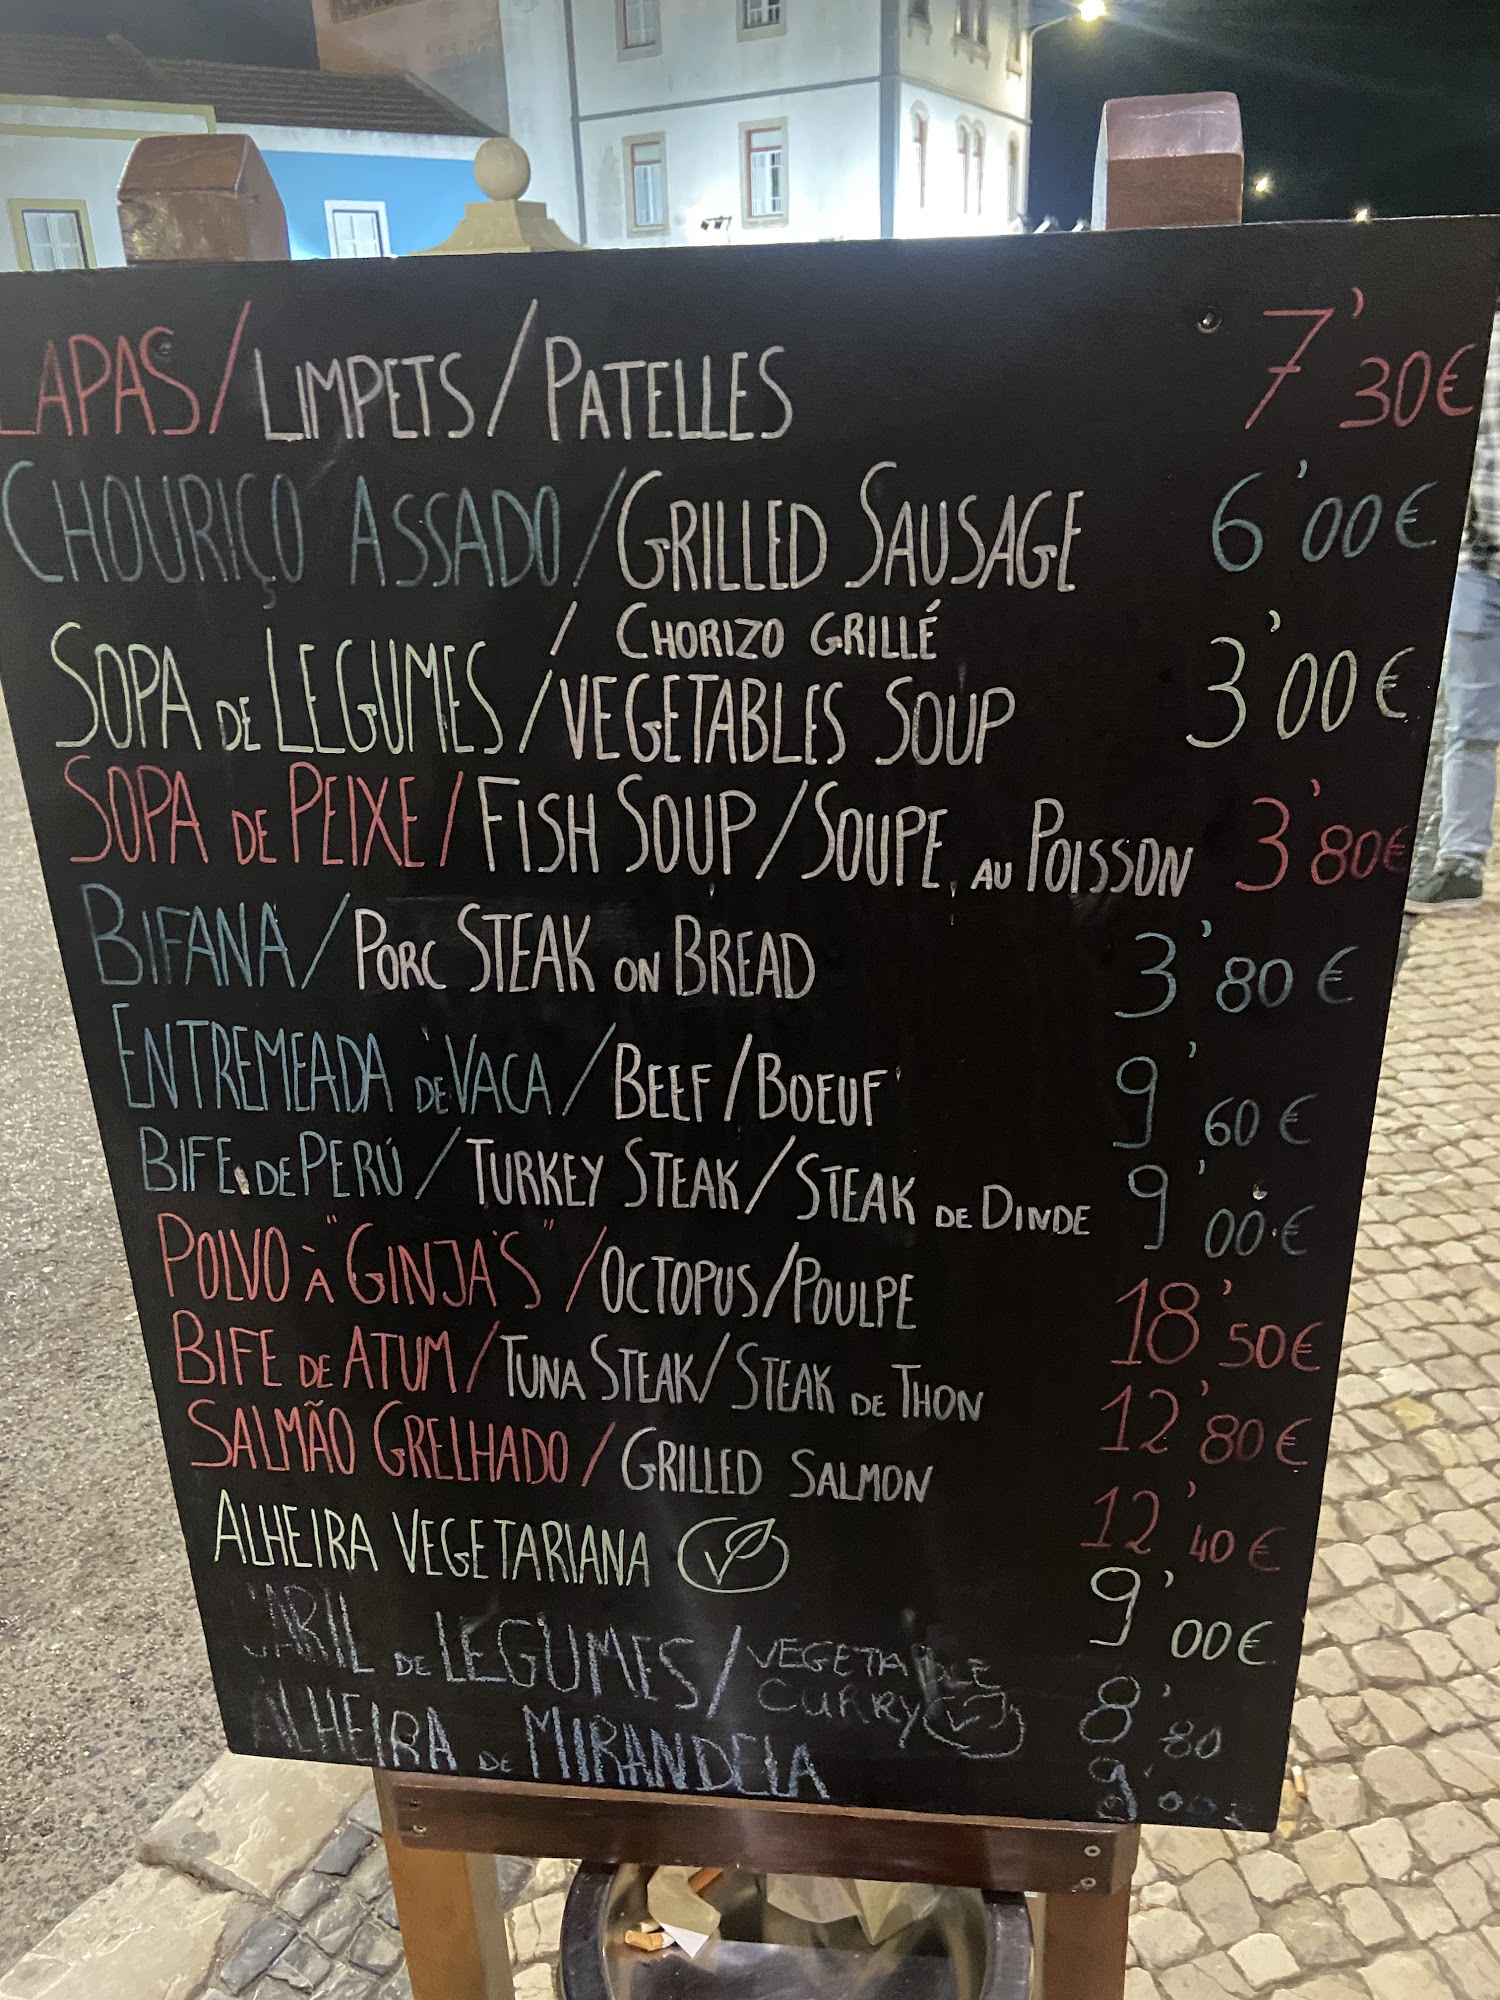 LAPAS/LIMPETS/PATELLES 7'30€
CHOURIÇO ASSADO/GRILLED SAUSAGE 6'00€
/ CHORIZO GRILLÉ
SOPA DE LEGUMES/VEGETABLES SOUP 3'00€
SOPA DE PEIXE/FISH SOUP/SOUPE AU POISSON 3'80€
BIFANA/PORC STEAK ON BREAD 3'80€
ENTREMEADA DE VACA/BEEF/BOEUF 9'60€
BIFE DE PERÚ/TURKEY STEAK/STEAK DE DINDE 9'00€
POLVO À "GINJA'S"/OCTOPUS/POULPE 18'50€
BIFE DE ATUM/TUNA STEAK/STEAK DE THON 12'80€
SALMÃO GRELHADO/GRILLED SALMON 12'40€
ALHEIRA VEGETARIANA 9'00€
CARIL DE LEGUMES/VEGETABLE CURRY 8'80
ALHEIRA DE MIRANDELA 9'00€